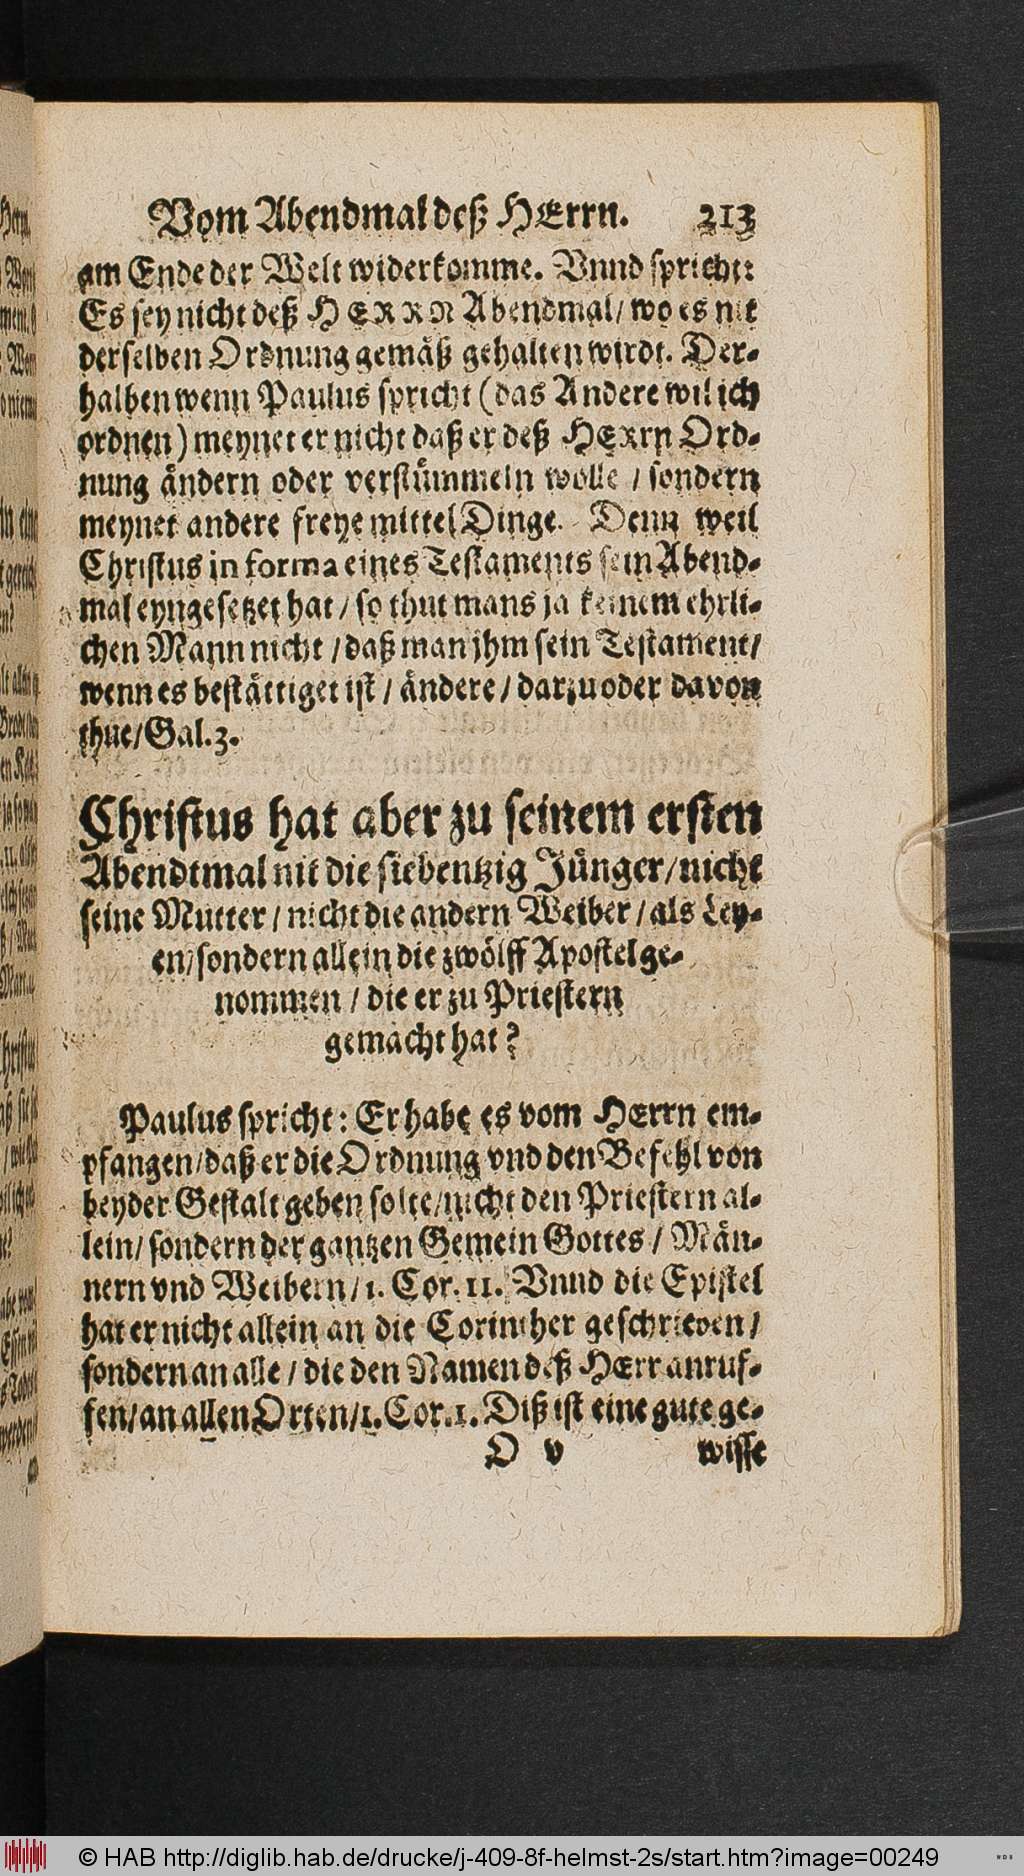 Vom Abendmal deß HErrn. 213
am Ende der Welt widerkomme. Vnnd spricht:
Es sey nicht deß HERRN Abendmal / wo es nit
derselben Ordnung gemäß gehalten wirdt. Der-
halben wenn Paulus spricht (das Andere wil ich
ordnen) meynet er nicht daß er deß HERrn Ord-
nung ändern oder verstümmeln wolle / sondern
meynet andere freye mittel Dinge. Denn weil
Christus in forma eines Testaments sein Abend-
mal eyngesetzet hat / so thut mans ja keinem ehrli-
chen Mann nicht / daß man jhm sein Testament /
wenn es bestättiget ist / ändere / darzu oder davon
thue / Gal. 3.
Christus hat aber zu seinem ersten
Abendtmal nit die siebentzig Jünger / nicht
seine Mutter / nicht die andern Weiber / als Ley-
en / sondern allein die zwölff Apostel ge-
nommen / die er zu Priestern
gemacht hat?
Paulus spricht: Er habe es vom HErrn em-
pfangen / daß er die Ordnung vnd den Befehl von
beyder Gestalt geben solte / nicht den Priestern al-
lein / sondern der gantzen Gemein Gottes / Män-
nern vnd Weibern / 1. Cor. 11. Vnnd die Epistel
hat er nicht allein an die Corinther geschrieben /
sondern an alle / die den Namen deß HErr anruf-
fen / an allen Orten / 1. Cor. 1. Diß ist eine gute ge-
O v wisse
© HAB http://diglib.hab.de/drucke/j-409-8f-helmst-2s/start.htm?image=00249